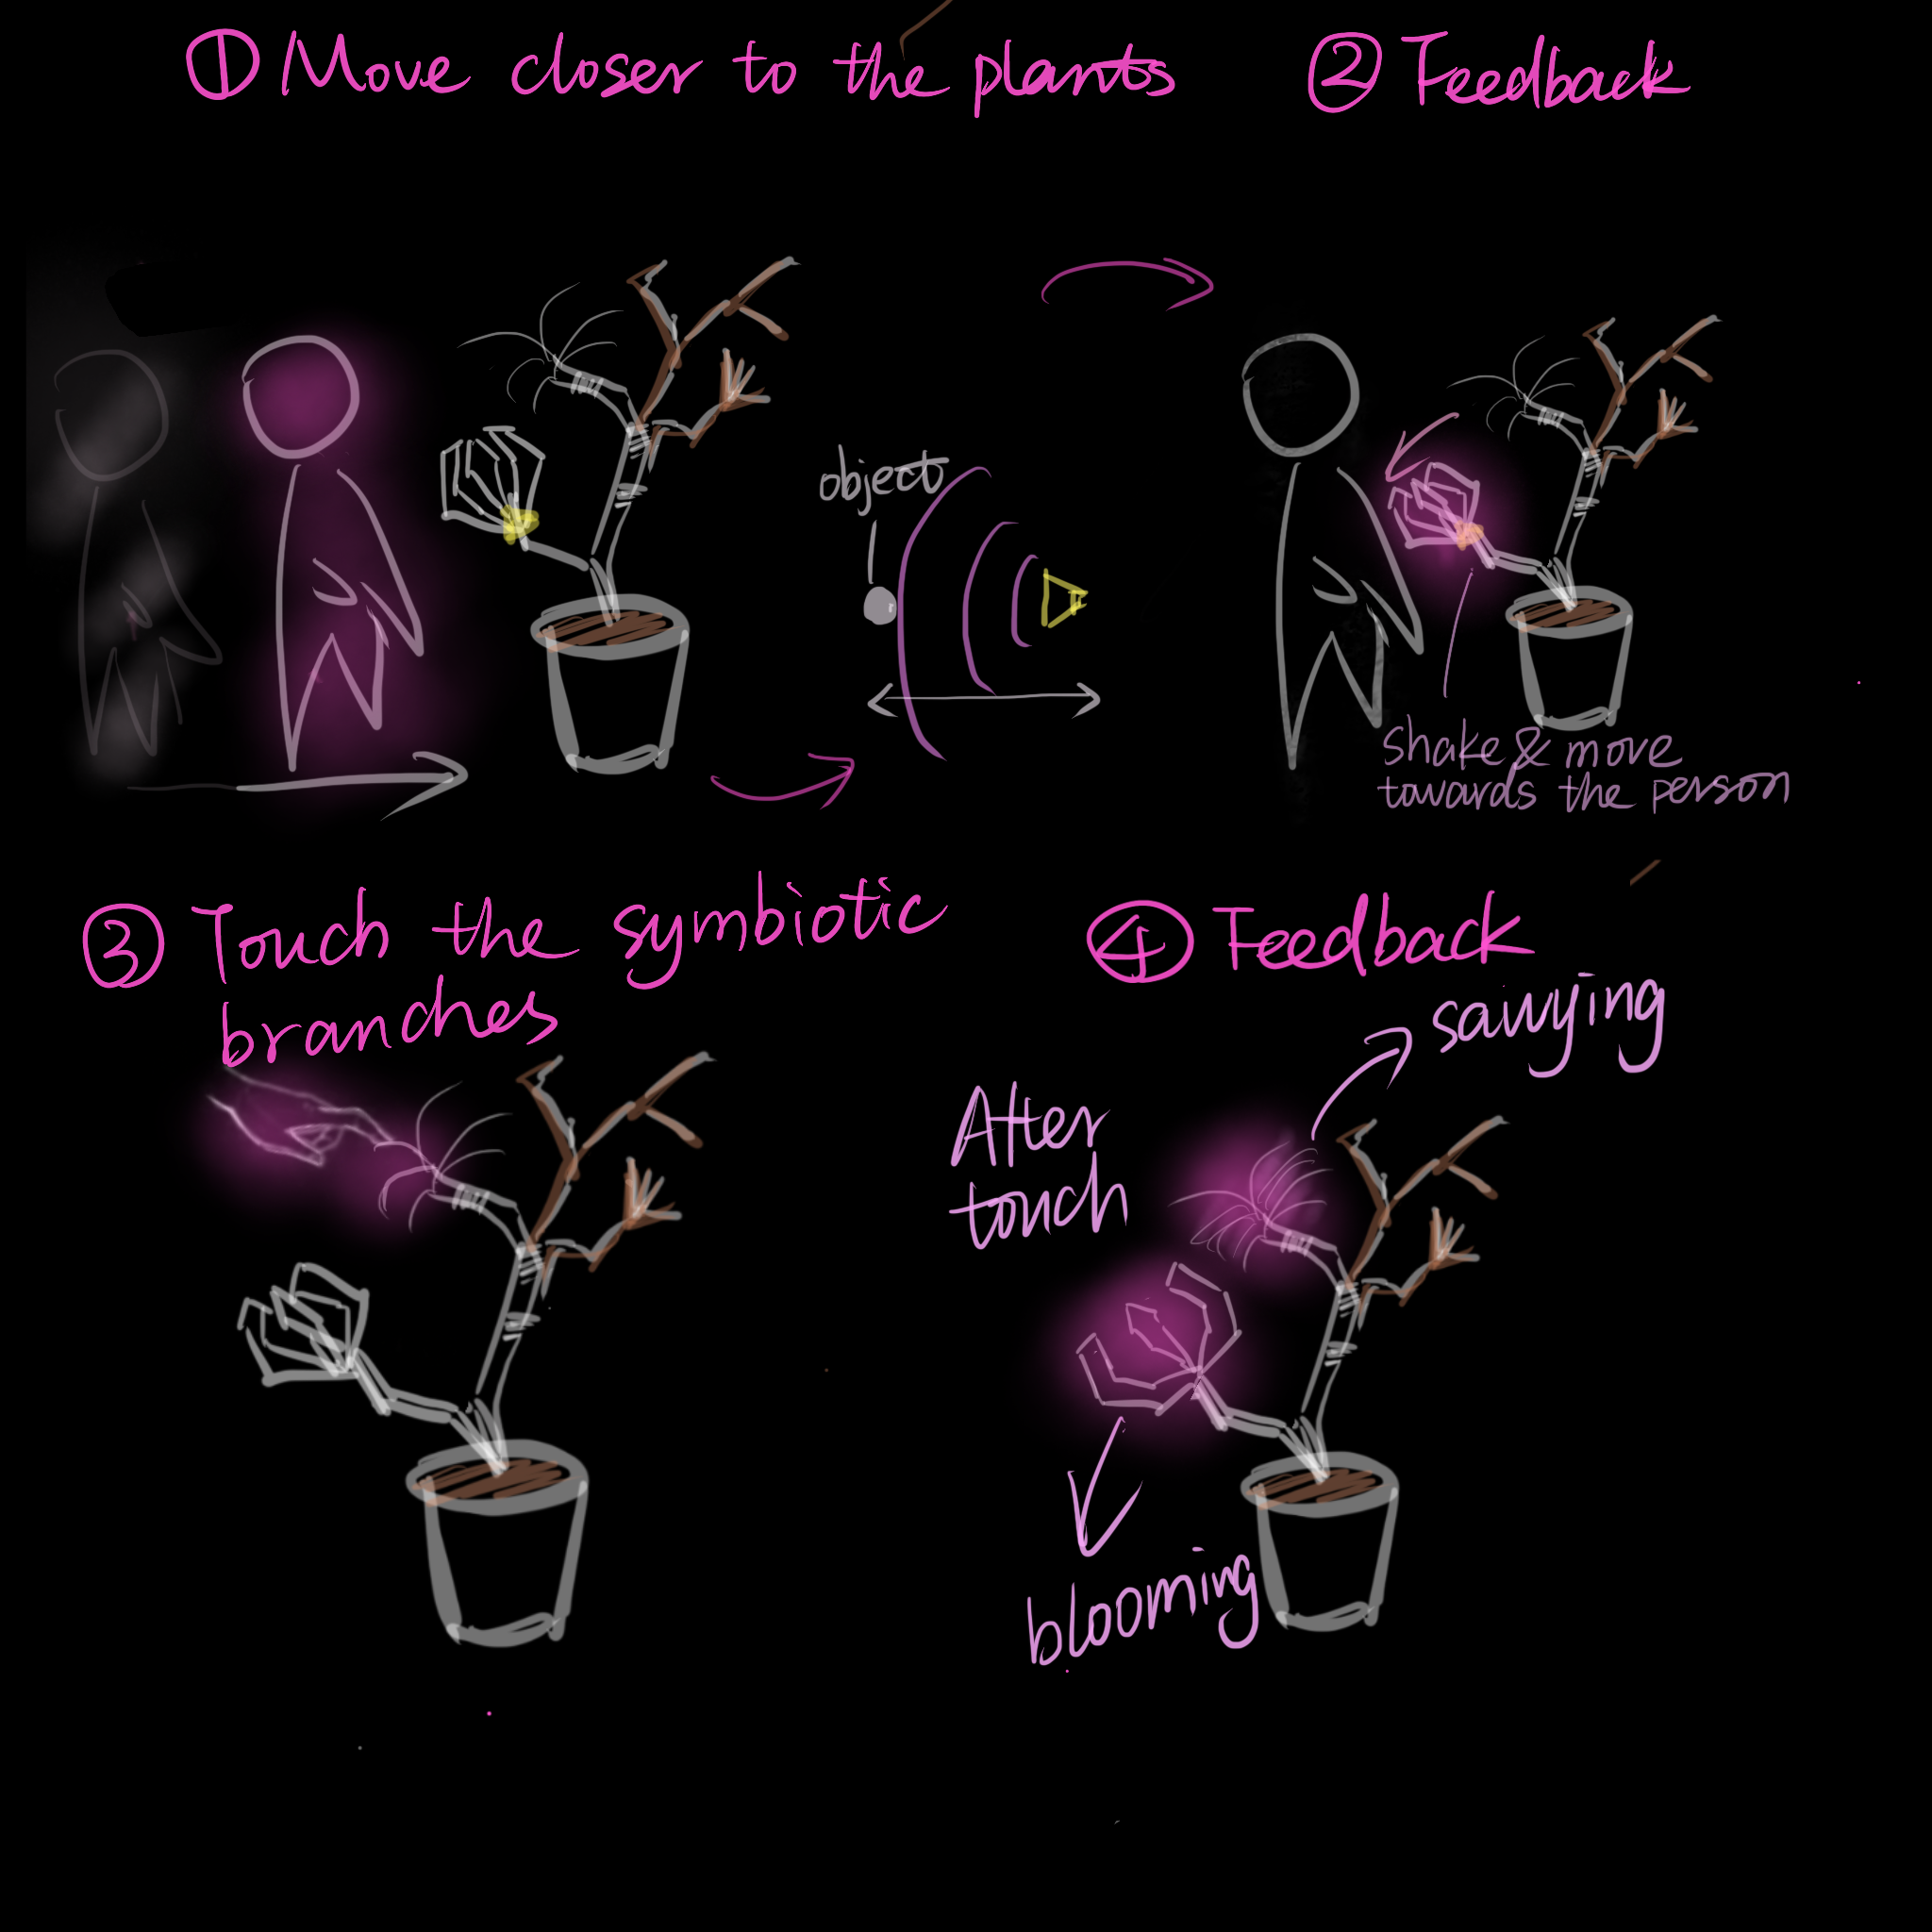 ① Move closer to the plants
② Feedback
object
Shake & move
towards the person
③ Touch the symbiotic
branches
④ Feedback
sawying
After
touch
blooming